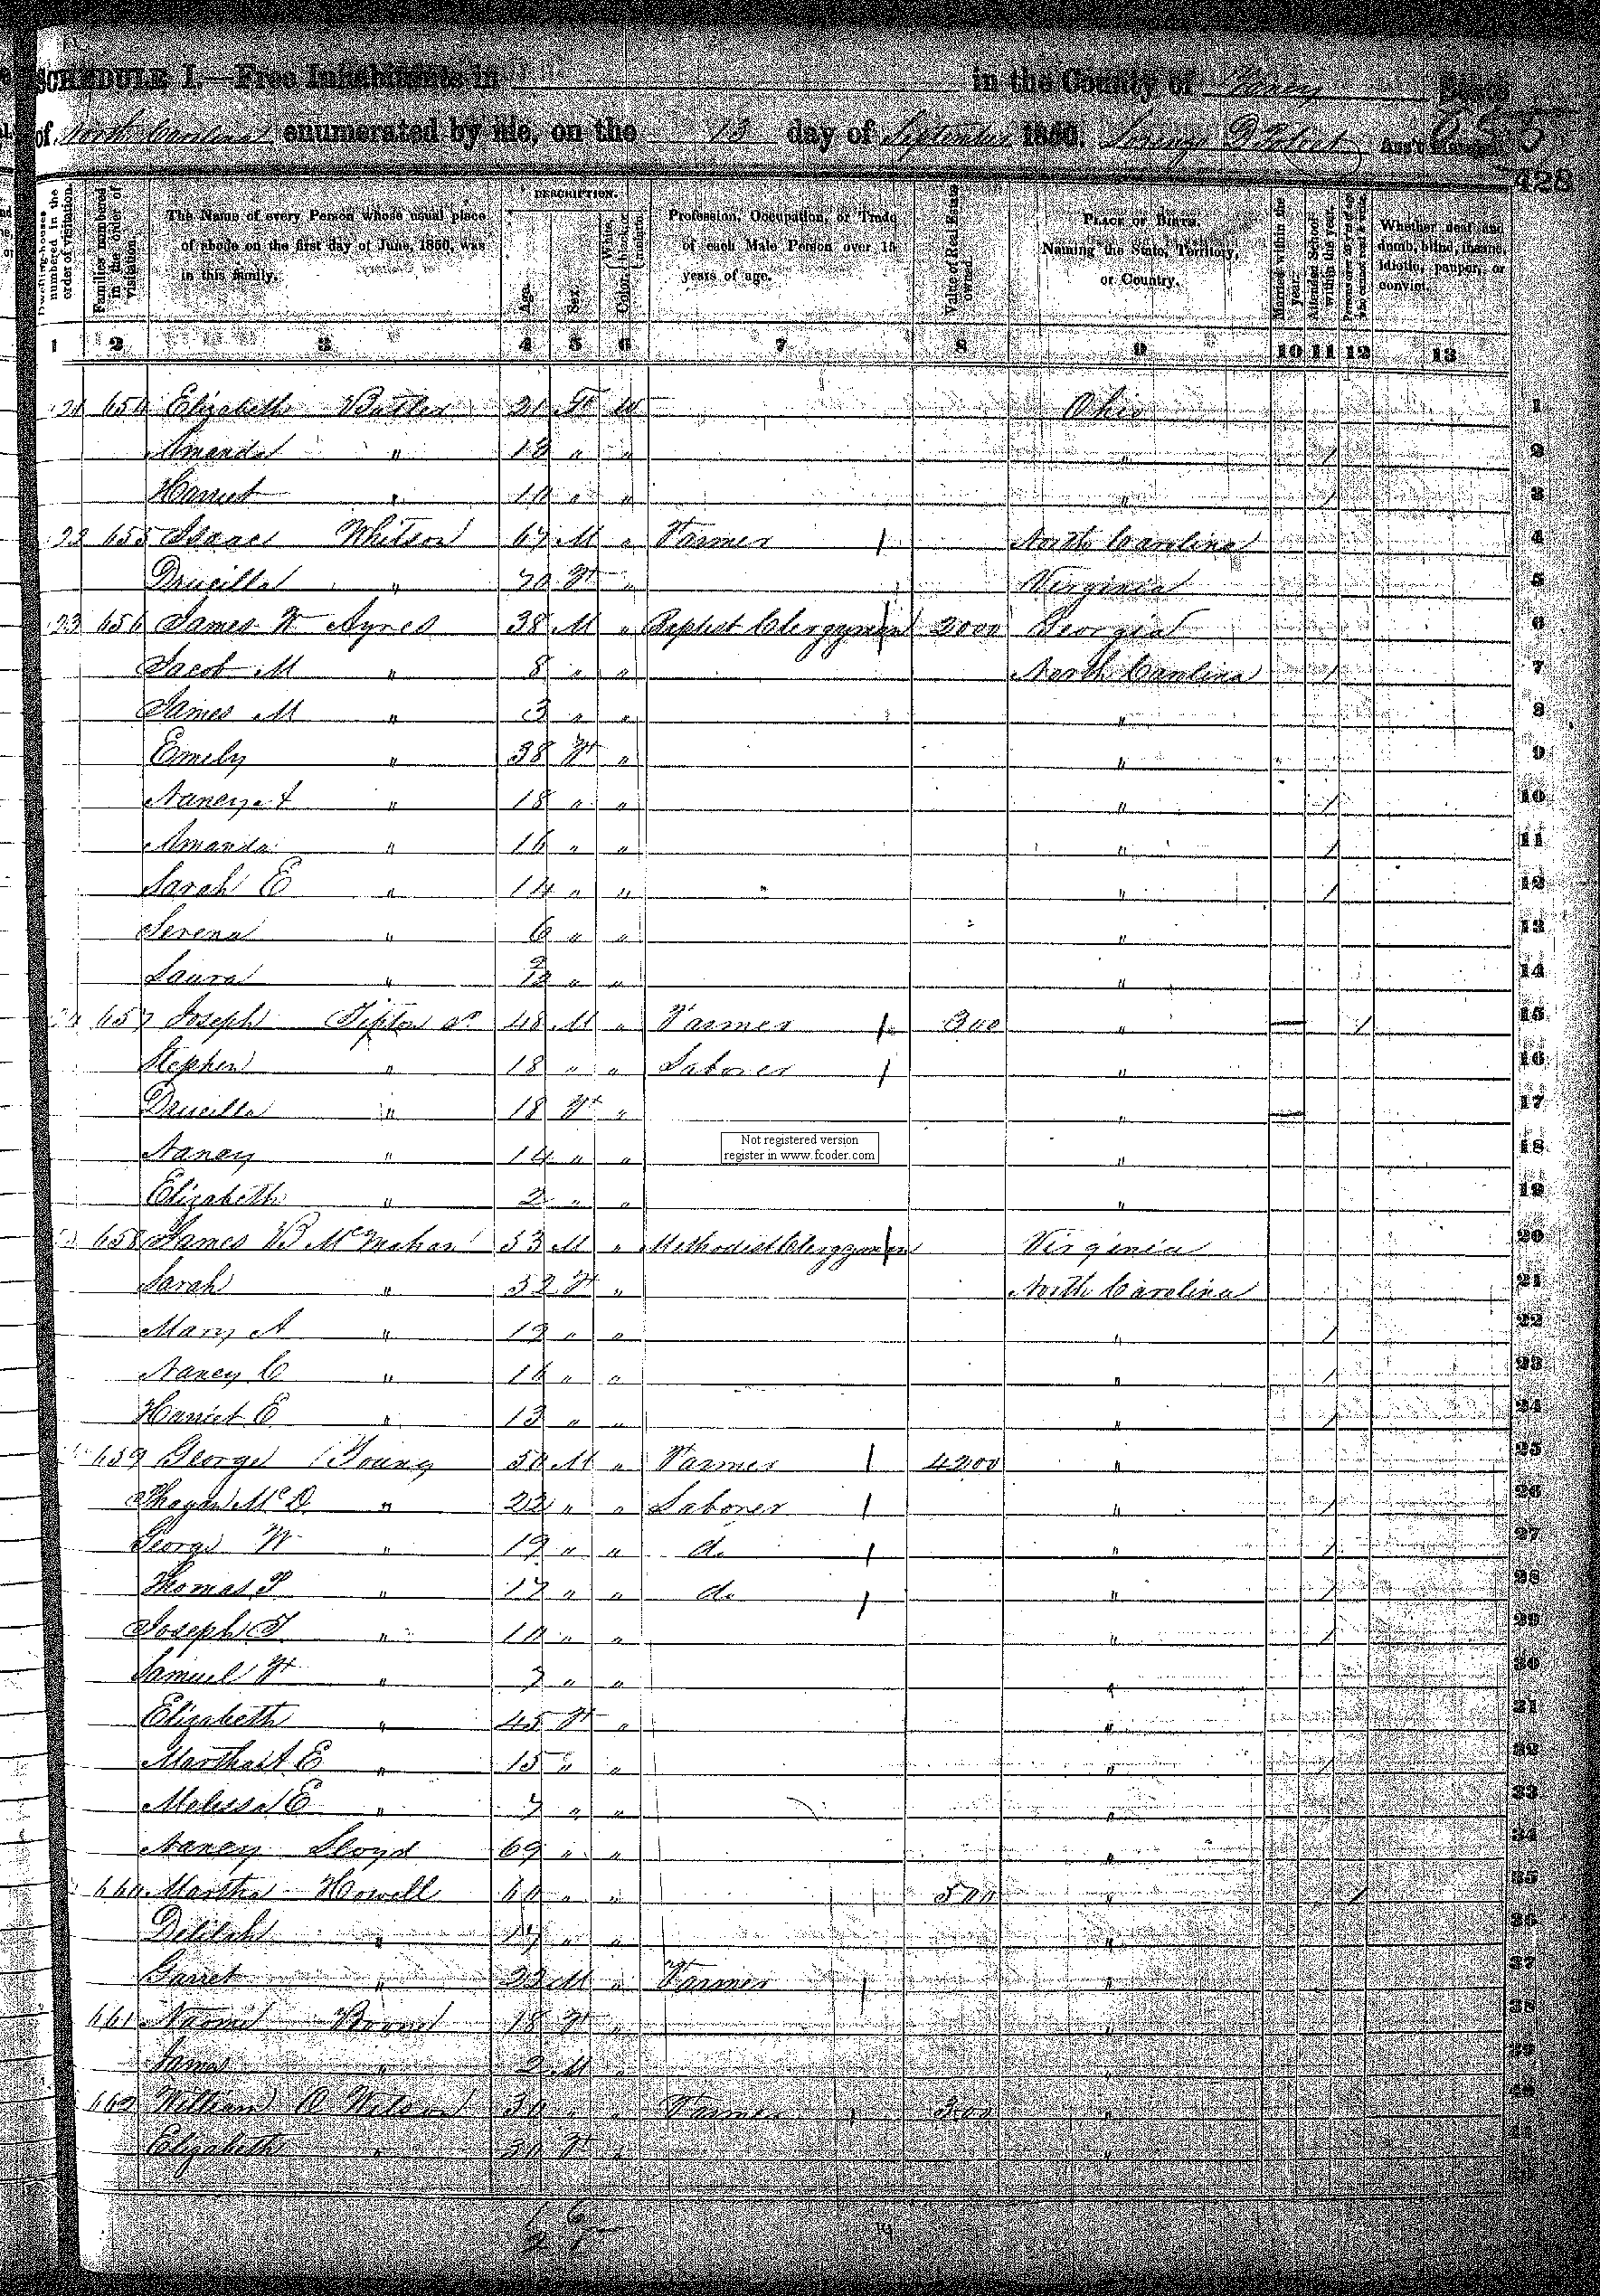 SCHEDULE I.—Free Inhabitants in in the County of Yancy State
of North Carolina enumerated by me, on the 13 day of September 1850. Lorenzo D Ass't Marshal. 655
428
Dwelling-houses numbered in the order of visitation.
Families numbered in the order of visitation.
The Name of every Person whose usual place of abode on the first day of June, 1850, was in this family.
DESCRIPTION.
Age.
Sex.
Color, White, black, or mulatto.
Profession, Occupation, or Trade of each Male Person over 15 years of age.
Value of Real Estate owned.
PLACE OF BIRTH. Naming the State, Territory, or Country.
Married within the year.
Attended School within the year.
Persons over 20 y'rs of age who cannot read & write.
Whether deaf and dumb, blind, insane, idiotic, pauper, or convict.
1 2 3 4 5 6 7 8 9 10 11 12 13
654 Elizabeth Butler 21 F W Ohio 1
Amanda " 13 " " " / 2
Harriet " 10 " " " / 3
655 Isaac Whitson 67 M " Farmer North Carolina 4
Drucilla " 70 F " Virginia 5
656 James W Ayres 38 M " Baptist Clergyman 2000 Georgia 6
Jacob M " 8 " " North Carolina / 7
James M " 3 " " " 8
Emely " 38 F " " 9
Nancy A " 18 " " " / 10
Amanda " 16 " " " / 11
Sarah E " 14 " " " / 12
Serena " 6 " " " 13
Laura " 9/12 " " " 14
657 Joseph Tipton sr 48 M " Farmer 300 " — / 15
Stephen " 18 " " Laborer " 16
Drucilla " 18 F " " — 17
Not registered version
register in www.fcoder.com
Nancy " 14 " " " 18
Elizabeth " 2 " " " 19
658 James B McMahan 53 M " Methodist Clergyman Virginia 20
Sarah " 52 F " North Carolina 21
Mary A " " " " / 22
Nancy C " 16 " " " / 23
Harriet E " 13 " " " / 24
659 George Young 50 M " Farmer 4200 " 25
McD " 22 " " Laborer " / 26
George W " 19 " " do " / 27
Thomas P " 17 " " do " / 28
Joseph T " 10 " " " / 29
Samuel F " 7 " " " 30
Elizabeth " 45 F " " 31
Martha A E " 15 " " " / 32
Melissa E " 7 " " " 33
Nancy Lloyd 69 " " " 34
660 Martha Howell 60 " " 500 " / 35
Delilah " " " " 36
Garret " 22 M " Farmer " 37
661 Naomi 18 F " " 38
James " 2 M " " 39
662 William O Wilson 30 " " Farmer 300 " 40
Elizabeth " 30 F " " 41